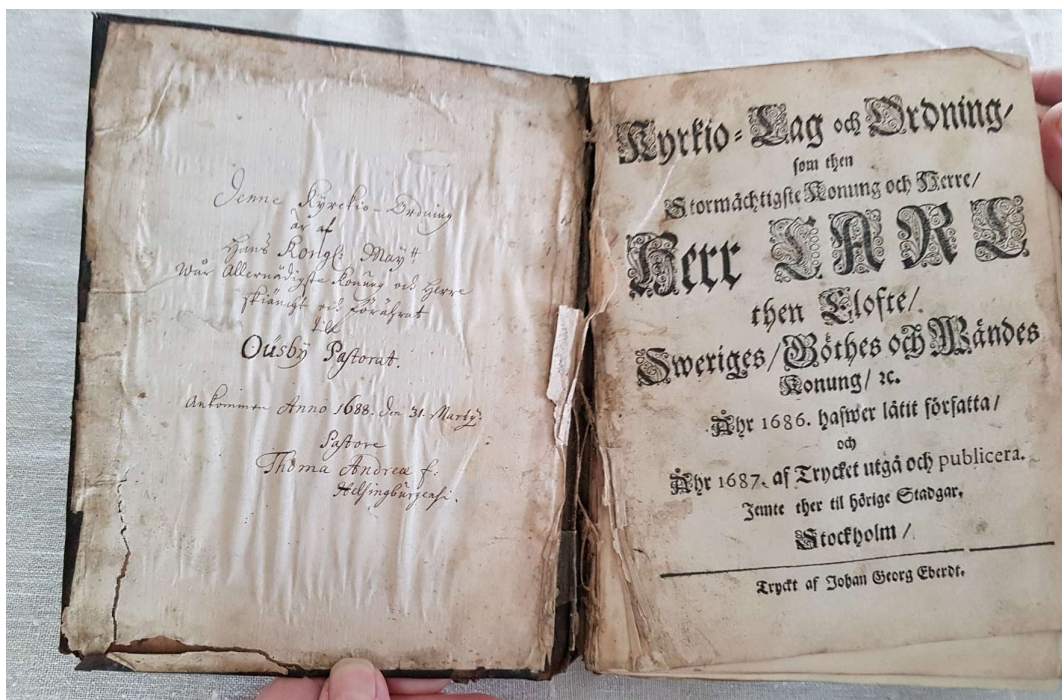 Denne Kyrckio-Ordning
är af
Hans Kongl: May:tt
Wår Allernådigste Konung och Herre
skiänckt och förährat
till
Oúsbÿ Pastorat.
Ankommen Anno 1688. den 31. Martÿ.
Pastore
Thoma Andreæ f.
Helsingbúrgensi.
Kyrkio-Lag och Ordning/
som then
Stormächtigste Konung och Herre/
Herr CARL
then Elofte/
Sweriges/Göthes och Wändes
Konung/ ꝛc.
Åhr 1686. hafwer låtit författa/
och
Åhr 1687. af Trycket utgå och publicera.
Jemte ther til hörige Stadgar.
Stockholm/
Tryckt af Johan Georg Eberdt.